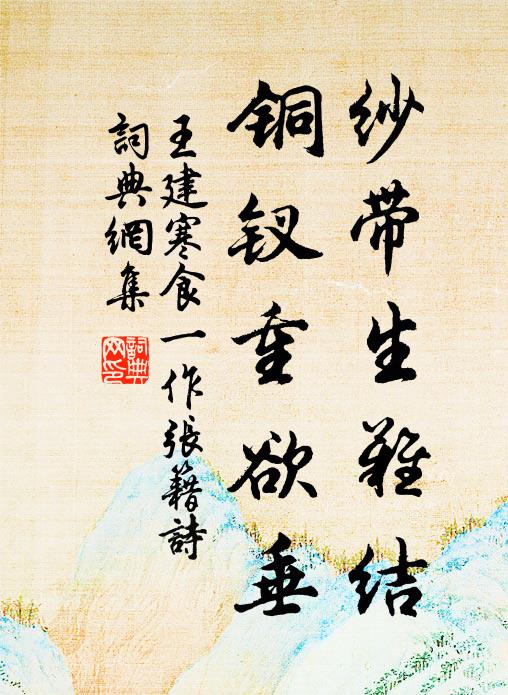 纱带生难结
铜钗重欲垂
王建寒食一作張籍詩
詞典網集
詞典网印